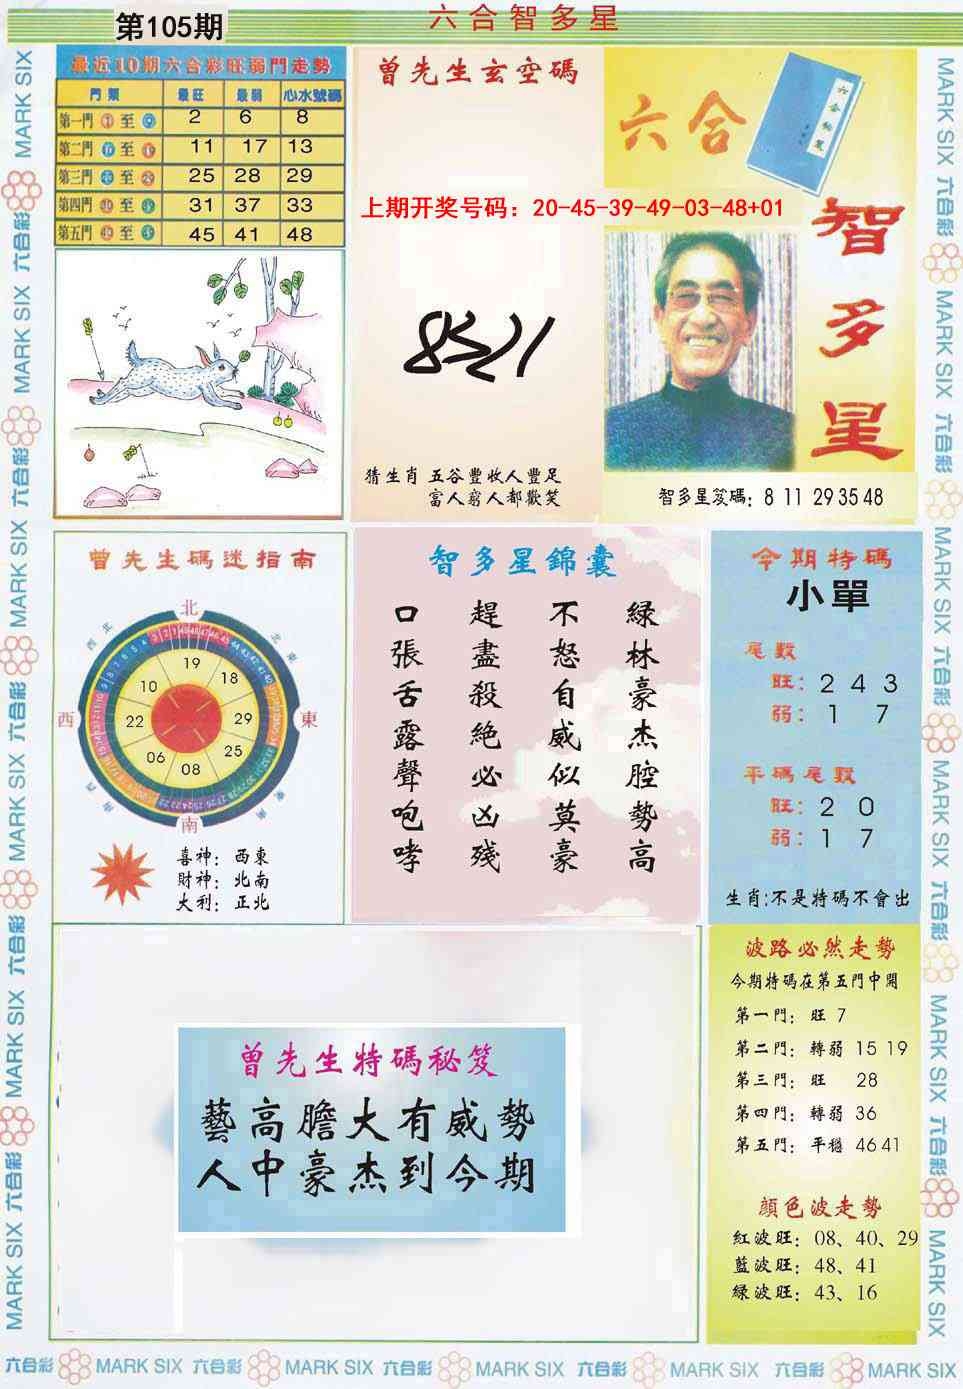 六合智多星
第105期
最近10期六合彩旺弱門走勢
門類 最旺 最弱 心水號碼
第一門 至 2 6 8
第二門 至 11 17 13
第三門 至 25 28 29
第四門 至 31 37 33
第五門 至 45 41 48
曾先生玄空碼
上期开奖号码：20-45-39-49-03-48+01
猜生肖 五谷豐收人豐足
富人窮人都歡笑
六合
智多星
智多星笈碼: 8 11 29 35 48
曾先生碼迷指南
北
西 東
南
19
18
29
25
08
06
22
10
喜神: 西東
財神: 北南
大利: 正北
智多星錦囊
綠林豪杰腔勢高
不怒自威似莫豪
趕盡殺絕必凶殘
口張舌露聲咆哮
今期特碼
小單
尾數
旺: 2 4 3
弱: 1 7
平碼尾數
旺: 2 0
弱: 1 7
生肖:不是特碼不會出
曾先生特碼秘笈
藝高膽大有威勢
人中豪杰到今期
波路必然走勢
今期特碼在第五門中開
第一門: 旺 7
第二門: 轉弱 15 19
第三門: 旺 28
第四門: 轉弱 36
第五門: 平穩 46 41
顔色波走勢
紅波旺: 08、40、29
藍波旺: 48、41
綠波旺: 43、16
MARK SIX 六合彩